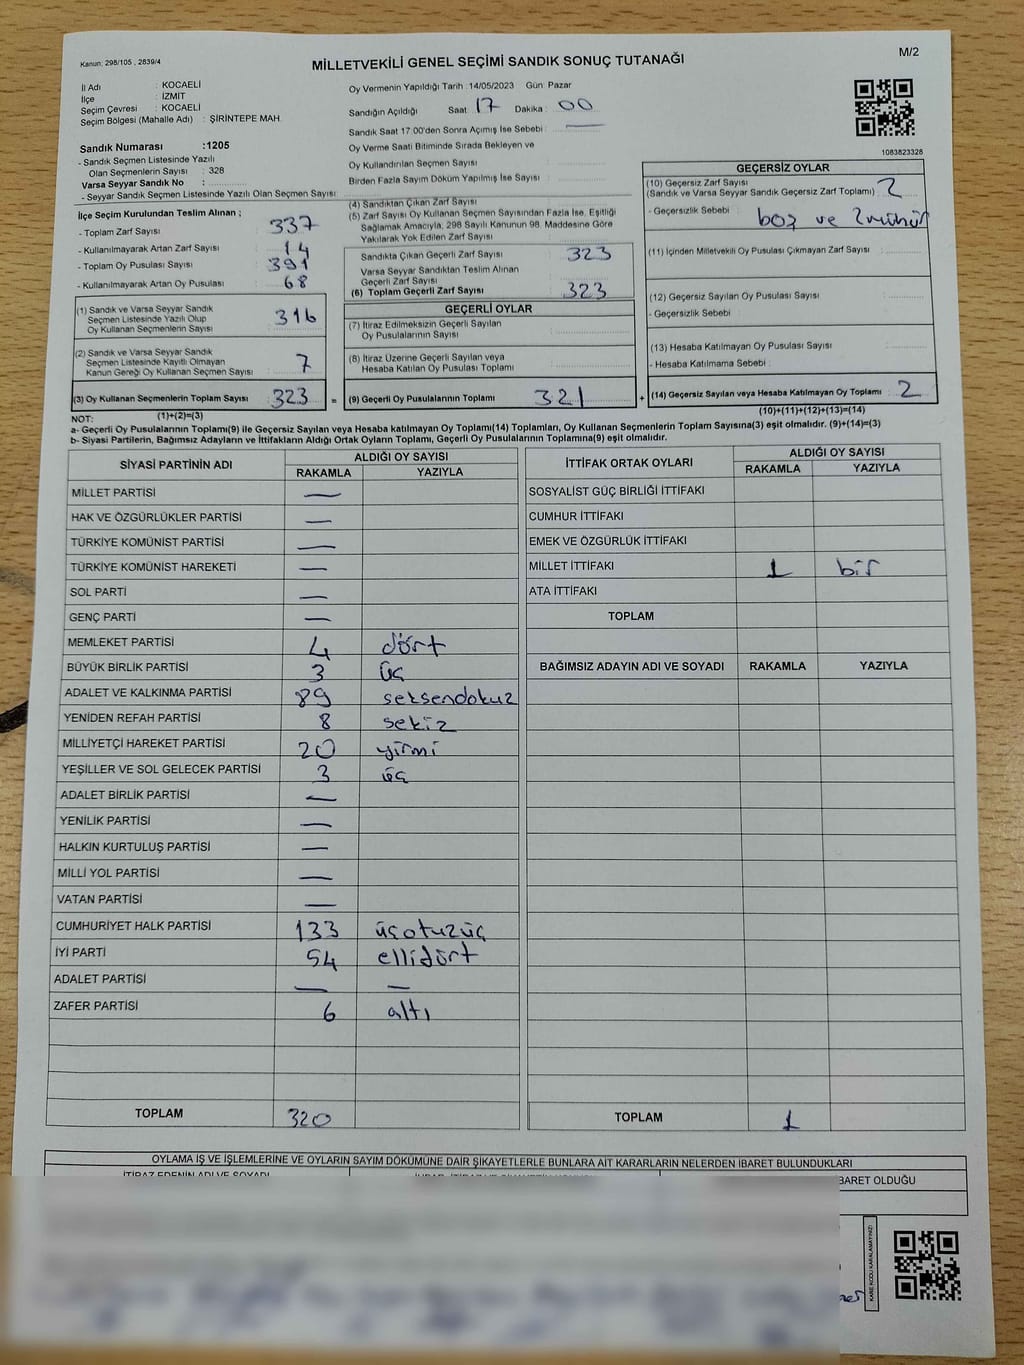 Kanun: 298/105 , 2839/4
MİLLETVEKİLİ GENEL SEÇİMİ SANDIK SONUÇ TUTANAĞI
M/2
İl Adı : KOCAELİ
İlçe : İZMİT
Seçim Çevresi : KOCAELİ
Seçim Bölgesi (Mahalle Adı) : ŞİRİNTEPE MAH.
Sandık Numarası :1205
- Sandık Seçmen Listesinde Yazılı
Olan Seçmenlerin Sayısı : 328
Varsa Seyyar Sandık No :
- Seyyar Sandık Seçmen Listesinde Yazılı Olan Seçmen Sayısı:
Oy Vermenin Yapıldığı Tarih :14/05/2023 Gün: Pazar
Sandığın Açıldığı Saat : 17 Dakika : 00
Sandık Saat 17.00'den Sonra Açılmış İse Sebebi : —
Oy Verme Saati Bitiminde Sırada Bekleyen ve
Oy Kullandırılan Seçmen Sayısı
Birden Fazla Sayım Döküm Yapılmış İse Sayısı :
1083823328
İlçe Seçim Kurulundan Teslim Alınan ;
- Toplam Zarf Sayısı : 337
- Kullanılmayarak Artan Zarf Sayısı : 14
- Toplam Oy Pusulası Sayısı : 391
- Kullanılmayarak Artan Oy Pusulası : 68
(1) Sandık ve Varsa Seyyar Sandık
Seçmen Listesinde Yazılı Olup
Oy Kullanan Seçmenlerin Sayısı : 316
(2) Sandık ve Varsa Seyyar Sandık
Seçmen Listesinde Kayıtlı Olmayan
Kanun Gereği Oy Kullanan Seçmen Sayısı : 7
(3) Oy Kullanan Seçmenlerin Toplam Sayısı : 323 =
(4) Sandıktan Çıkan Zarf Sayısı :
(5) Zarf Sayısı Oy Kullanan Seçmen Sayısından Fazla İse, Eşitliği
Sağlamak Amacıyla, 298 Sayılı Kanunun 98. Maddesine Göre
Yakılarak Yok Edilen Zarf Sayısı :
Sandıkta Çıkan Geçerli Zarf Sayısı : 323
Varsa Seyyar Sandıktan Teslim Alınan
Geçerli Zarf Sayısı :
(6) Toplam Geçerli Zarf Sayısı : 323
GEÇERLİ OYLAR
(7) İtiraz Edilmeksizin Geçerli Sayılan
Oy Pusulalarının Sayısı :
(8) İtiraz Üzerine Geçerli Sayılan veya
Hesaba Katılan Oy Pusulası Toplamı :
(9) Geçerli Oy Pusulalarının Toplamı : 321 +
GEÇERSİZ OYLAR
(10) Geçersiz Zarf Sayısı
(Sandık ve Varsa Seyyar Sandık Geçersiz Zarf Toplamı) : 2
- Geçersizlik Sebebi : boş ve 2 mühür
(11) İçinden Milletvekili Oy Pusulası Çıkmayan Zarf Sayısı :
(12) Geçersiz Sayılan Oy Pusulası Sayısı :
- Geçersizlik Sebebi :
(13) Hesaba Katılmayan Oy Pusulası Sayısı :
- Hesaba Katılmama Sebebi :
(14) Geçersiz Sayılan veya Hesaba Katılmayan Oy Toplamı : 2
NOT: (1)+(2)=(3) (10)+(11)+(12)+(13)=(14)
a- Geçerli Oy Pusulalarının Toplamı(9) ile Geçersiz Sayılan veya Hesaba katılmayan Oy Toplamı(14) Toplamları, Oy Kullanan Seçmenlerin Toplam Sayısına(3) eşit olmalıdır. (9)+(14)=(3)
b- Siyasi Partilerin, Bağımsız Adayların ve İttifakların Aldığı Ortak Oyların Toplamı, Geçerli Oy Pusulalarının Toplamına(9) eşit olmalıdır.
SİYASİ PARTİNİN ADI ALDIĞI OY SAYISI
RAKAMLA YAZIYLA
MİLLET PARTİSİ —
HAK VE ÖZGÜRLÜKLER PARTİSİ —
TÜRKİYE KOMÜNİST PARTİSİ —
TÜRKİYE KOMÜNİST HAREKETİ —
SOL PARTİ —
GENÇ PARTİ —
MEMLEKET PARTİSİ 4 dört
BÜYÜK BİRLİK PARTİSİ 3 üç
ADALET VE KALKINMA PARTİSİ 89 seksendokuz
YENİDEN REFAH PARTİSİ 8 sekiz
MİLLİYETÇİ HAREKET PARTİSİ 20 yirmi
YEŞİLLER VE SOL GELECEK PARTİSİ 3 üç
ADALET BİRLİK PARTİSİ —
YENİLİK PARTİSİ —
HALKIN KURTULUŞ PARTİSİ —
MİLLİ YOL PARTİSİ —
VATAN PARTİSİ —
CUMHURİYET HALK PARTİSİ 133 üçotuzüç
İYİ PARTİ 54 ellidört
ADALET PARTİSİ — —
ZAFER PARTİSİ 6 altı
TOPLAM 320
İTTİFAK ORTAK OYLARI ALDIĞI OY SAYISI
RAKAMLA YAZIYLA
SOSYALİST GÜÇ BİRLİĞİ İTTİFAKI
CUMHUR İTTİFAKI
EMEK VE ÖZGÜRLÜK İTTİFAKI
MİLLET İTTİFAKI 1 bir
ATA İTTİFAKI
TOPLAM
BAĞIMSIZ ADAYIN ADI VE SOYADI RAKAMLA YAZIYLA
TOPLAM 1
OYLAMA İŞ VE İŞLEMLERİNE VE OYLARIN SAYIM DÖKÜMÜNE DAİR ŞİKAYETLERLE BUNLARA AİT KARARLARIN NELERDEN İBARET BULUNDUKLARI
İTİRAZ EDENİN ADI VE SOYADI
BARET OLDUĞU
KARE KODU KARALAMAYINIZ!